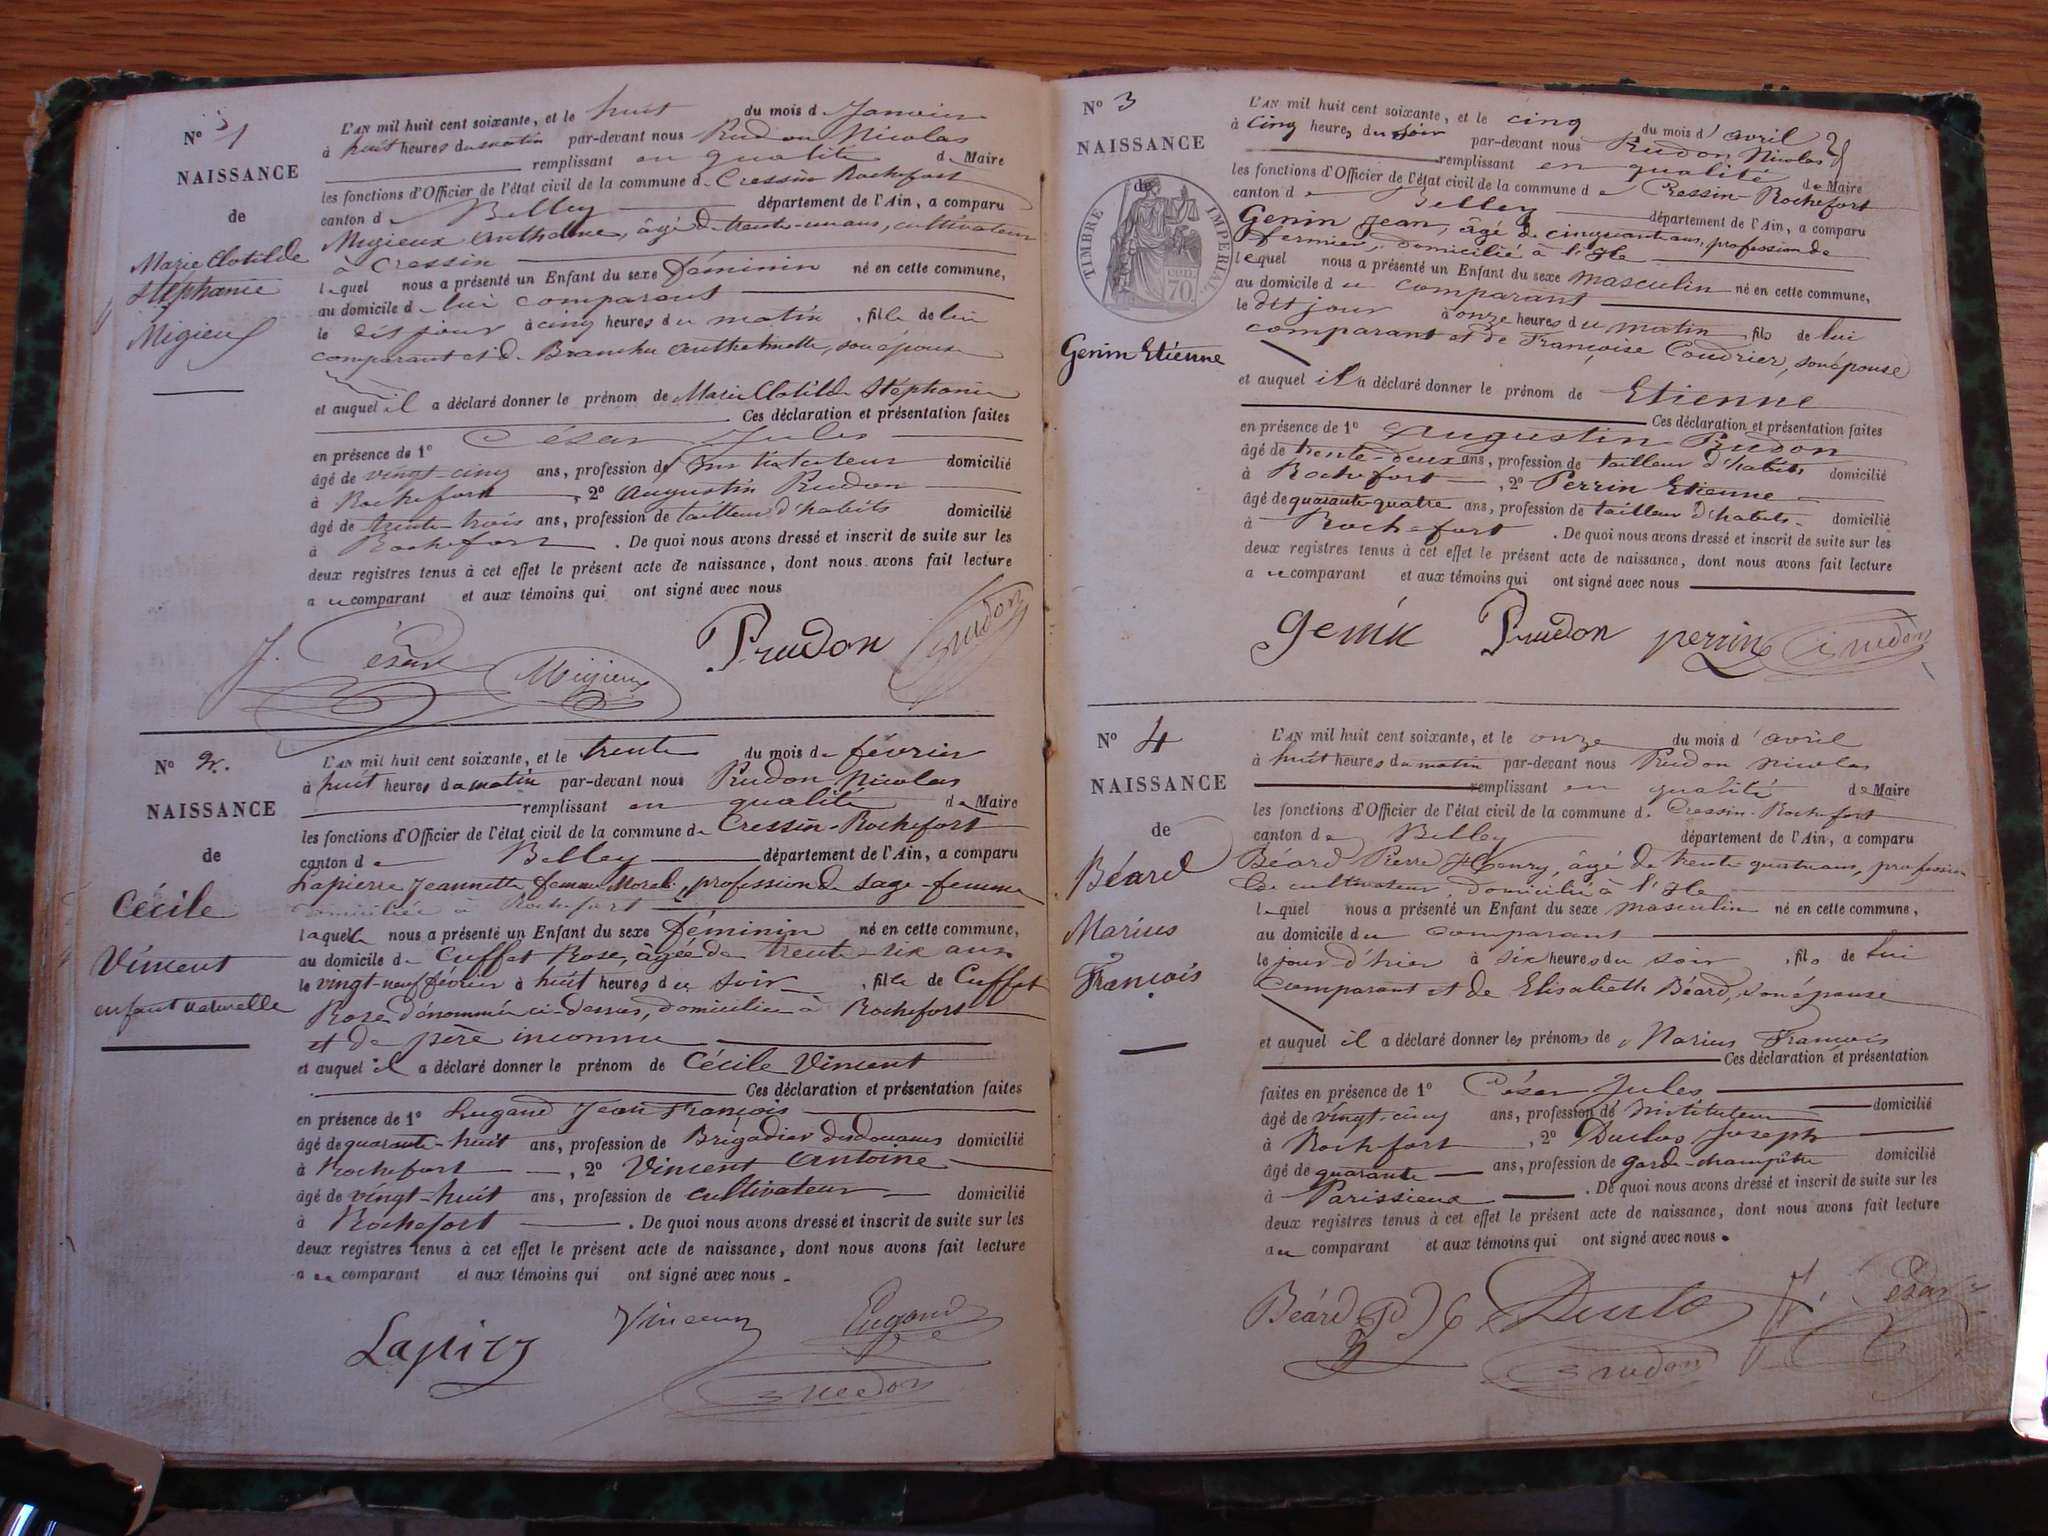 N° 1
NAISSANCE
de
Marie Clotilde
Stéphanie
Migieux
L'AN mil huit cent soixante, et le huit du mois d Janvier
à huit heures du matin par-devant nous Prudon Nicolas
remplissant en qualité de Maire
les fonctions d'Officier de l'état civil de la commune de Cressin Rochefort
canton de Belley département de l'Ain, a comparu
Migieux Anthelme, âgé de trente-un ans, cultivateur
à Cressin
lequel nous a présenté un Enfant du sexe féminin né en cette commune,
au domicile de lui comparant
le dit jour à cinq heures du matin, fille de lui
comparant et de Branche Anthelmette, son épouse
et auquel il a déclaré donner le prénom de Marie Clotilde Stéphanie
Ces déclaration et présentation faites
en présence de 1° César Jules
âgé de vingt-cinq ans, profession d' Instituteur domicilié
à Rochefort, 2° Augustin Prudon
âgé de trente-trois ans, profession de tailleur d'habits domicilié
à Rochefort. De quoi nous avons dressé et inscrit de suite sur les
deux registres tenus à cet effet le présent acte de naissance, dont nous avons fait lecture
au comparant et aux témoins qui ont signé avec nous
J. César Migieux Prudon Prudon
N° 2.
NAISSANCE
de
Cécile
Vincent
enfant naturelle
L'AN mil huit cent soixante, et le trente du mois de février
à huit heures du matin par-devant nous Prudon Nicolas
remplissant en qualité de Maire
les fonctions d'Officier de l'état civil de la commune de Cressin-Rochefort
canton de Belley département de l'Ain, a comparu
Lapierre Jeannette femme Morel, profession de sage-femme
domiciliée à Rochefort
laquelle nous a présenté un Enfant du sexe féminin né en cette commune,
au domicile de Cuffet Rose, âgée de trente-six ans
le vingt-neuf février à huit heures du soir, fille de Cuffet
Rose dénommée ci-dessus, domiciliée à Rochefort
et de père inconnu
et auquel il a déclaré donner le prénom de Cécile Vincent
Ces déclaration et présentation faites
en présence de 1° Lugand Jean François
âgé de quarante-huit ans, profession de Brigadier des douanes domicilié
à Rochefort, 2° Vincent Antoine
âgé de vingt-huit ans, profession de cultivateur domicilié
à Rochefort. De quoi nous avons dressé et inscrit de suite sur les
deux registres tenus à cet effet le présent acte de naissance, dont nous avons fait lecture
au comparant et aux témoins qui ont signé avec nous
Vincent Lugand
Prudon
N° 3
NAISSANCE
de
TIMBRE IMPERIAL
70
Genin Etienne
L'AN mil huit cent soixante, et le cinq du mois d'avril
à cinq heures du soir par-devant nous Prudon Nicolas
remplissant en qualité de Maire
les fonctions d'Officier de l'état civil de la commune de Cressin-Rochefort
canton de Belley département de l'Ain, a comparu
Genin Jean, âgé de cinquante ans, profession de
fermier, domicilié à l'Ile
lequel nous a présenté un Enfant du sexe masculin né en cette commune,
au domicile du comparant
le dit jour à onze heures du matin fils de lui
comparant et de Françoise Coudrier, son épouse
et auquel il a déclaré donner le prénom de Etienne
Ces déclaration et présentation faites
en présence de 1° Augustin Prudon
âgé de trente-deux ans, profession de tailleur d'habits domicilié
à Rochefort, 2° Perrin Etienne
âgé de quarante-quatre ans, profession de tailleur d'habits domicilié
à Rochefort. De quoi nous avons dressé et inscrit de suite sur les
deux registres tenus à cet effet le présent acte de naissance, dont nous avons fait lecture
au comparant et aux témoins qui ont signé avec nous
Genin Prudon perrin Prudon
N° 4
NAISSANCE
de
Béard
Marius
François
L'AN mil huit cent soixante, et le onze du mois d'avril
à huit heures du matin par-devant nous Prudon Nicolas
remplissant en qualité de Maire
les fonctions d'Officier de l'état civil de la commune de Cressin-Rochefort
canton de Belley département de l'Ain, a comparu
Béard Pierre Henry, âgé de trente quatre ans, profession
de cultivateur, domicilié à l'Ile
lequel nous a présenté un Enfant du sexe masculin né en cette commune,
au domicile du comparant
le jour d'hier à six heures du soir, fils de lui
comparant et de Elisabeth Béard, son épouse
et auquel il a déclaré donner les prénoms de Marius François
Ces déclaration et présentation
faites en présence de 1° César Jules
âgé de vingt-cinq ans, profession de Instituteur domicilié
à Rochefort, 2° Duclos Joseph
âgé de quarante ans, profession de garde-champêtre domicilié
à Parissieux. De quoi nous avons dressé et inscrit de suite sur les
deux registres tenus à cet effet le présent acte de naissance, dont nous avons fait lecture
au comparant et aux témoins qui ont signé avec nous.
Béard J. César
Prudon